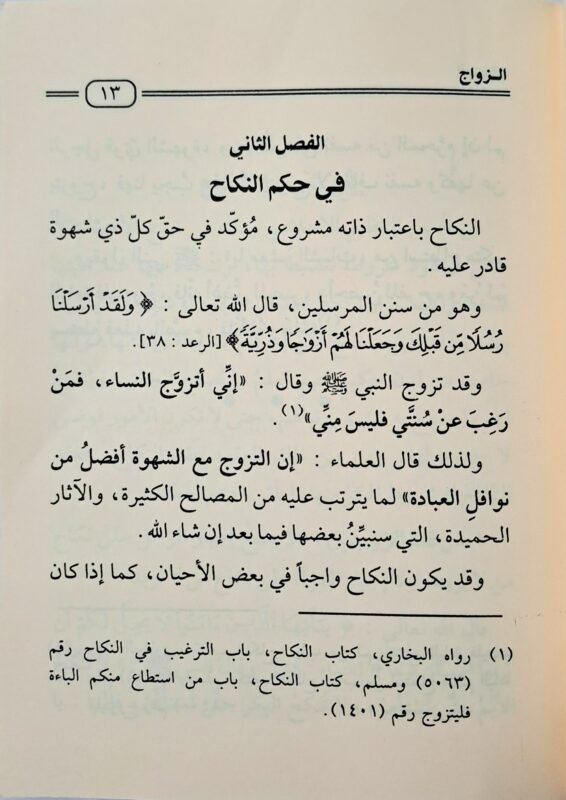 الـزواج
١٣
الفصل الثاني
في حكم النكاح
النكاح باعتبار ذاته مشروع، مُؤكّد في حقّ كلّ ذي شهوة
قادر عليه .
وهو من سنن المرسلين، قال الله تعالى : ﴿ وَلَقَدْ أَرْسَلْنَا
رُسُلًا مِّن قَبْلِكَ وَجَعَلْنَا لَهُمْ أَزْوَٰجًا وَذُرِّيَّةً ﴾ [الرعد : ٣٨].
وقد تزوج النبي ﷺ وقال : «إنِّي أتزوَّج النساء، فمَنْ
رَغِبَ عنْ سُنَّتي فليسَ مِنِّي»(١).
ولذلك قال العلماء : «إن التزوج مع الشهوة أفضلُ من
نوافلِ العبادة» لما يترتب عليه من المصالح الكثيرة، والآثار
الحميدة، التي سنبيِّنُ بعضها فيما بعد إن شاء الله .
وقد يكون النكاح واجباً في بعض الأحيان، كما إذا كان
(١) رواه البخاري، كتاب النكاح، باب الترغيب في النكاح رقم
(٥٠٦٣) ومسلم، كتاب النكاح، باب من استطاع منكم الباءة
فليتزوج رقم (١٤٠١).